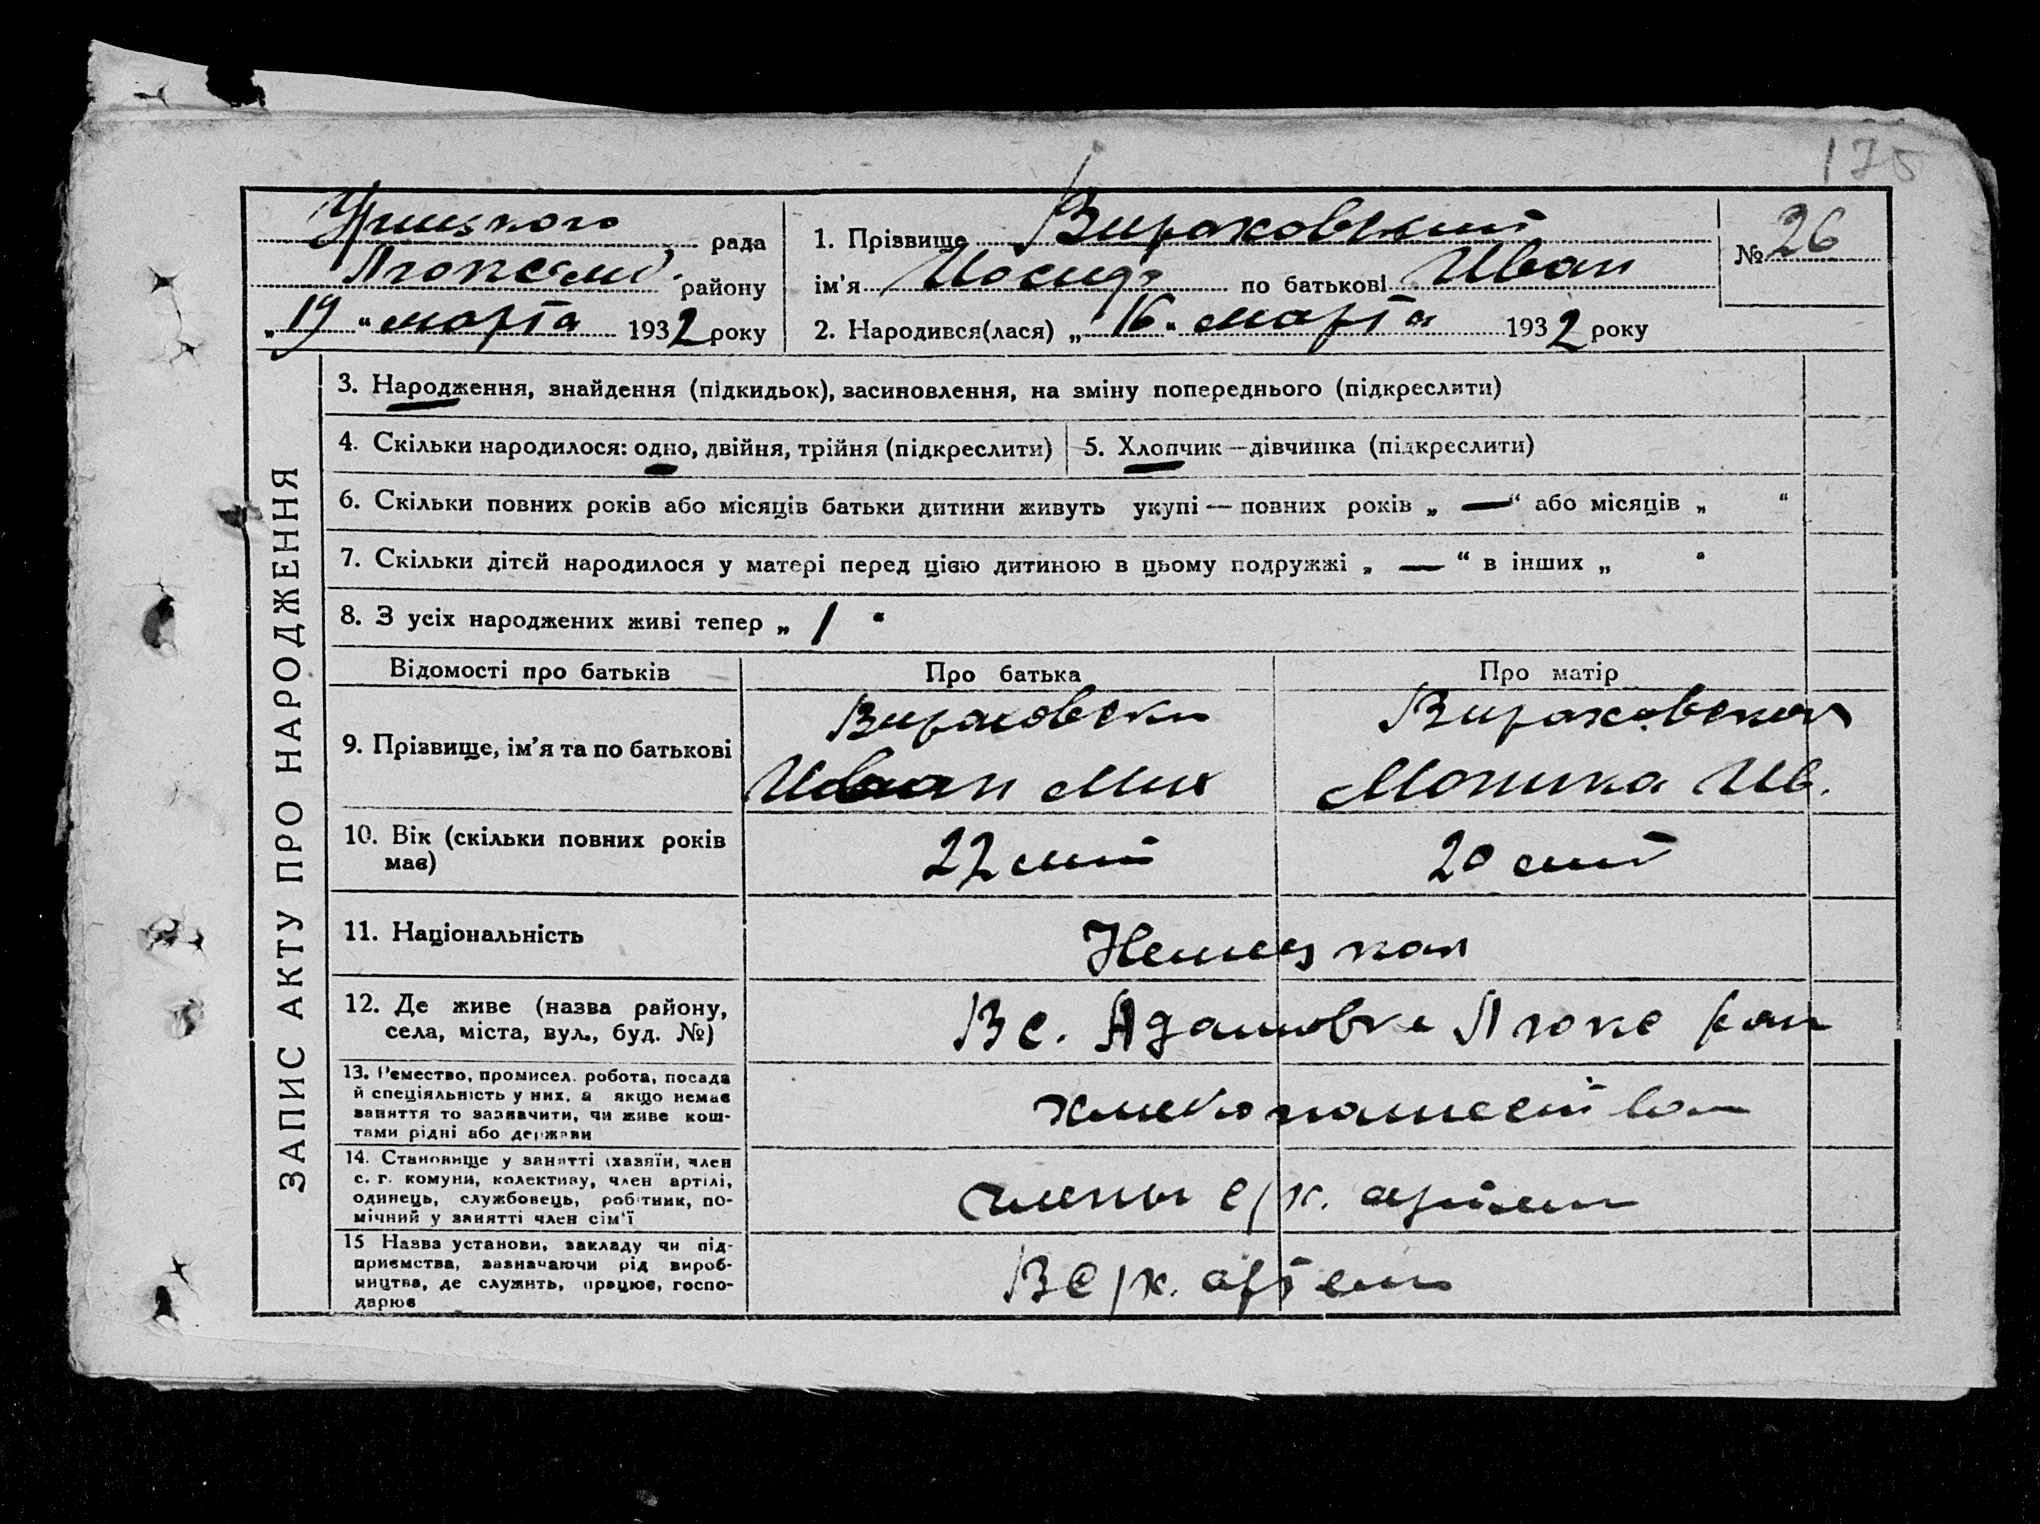 175
Урицкого рада
Люксемб. району
„19“ марта 1932 року
1. Прізвище Вираховский
ім'я Иосиф по батькові Иван
2. Народився(лася) „16“ марта 1932 року
№ 26
ЗАПИС АКТУ ПРО НАРОДЖЕННЯ
3. Народження, знайдення (підкидьок), засиновлення, на зміну попереднього (підкреслити)
4. Скільки народилося: одно, двійня, трійня (підкреслити) 5. Хлопчик—дівчинка (підкреслити)
6. Скільки повних років або місяців батьки дитини живуть укупі — повних років „ — “ або місяців „ “
7. Скільки дітей народилося у матері перед цією дитиною в цьому подружжі „ — “ в інших „ “
8. З усіх народжених живі тепер „ 1 “
Відомості про батьків Про батька Про матір
9. Прізвище, ім'я та по батькові
Вираховски
Иван Мих
Вираховская
Моника Ив.
10. Вік (скільки повних років
має)
22 20
11. Національність Немецкая
12. Де живе (назва району,
села, міста, вул., буд. №)
В с. Адамовке Люкс рай
13. Ремество, промисел, робота, посада
й спеціяльність у них, а якщо немає
заняття то зазначити, чи живе кош-
тами рідні або держави
хлебопашеством
14. Становище у занятті (хазяїн, член
с. г. комуни, колективу, член артілі,
одинець, службовець, робітник, по-
мічний у занятті член сім'ї
члены с/х. артели
15 Назва установи, закладу чи під-
приємства, зазначаючи рід вироб-
ництва, де служить, працює, госпо-
дарює
В с/х. артели